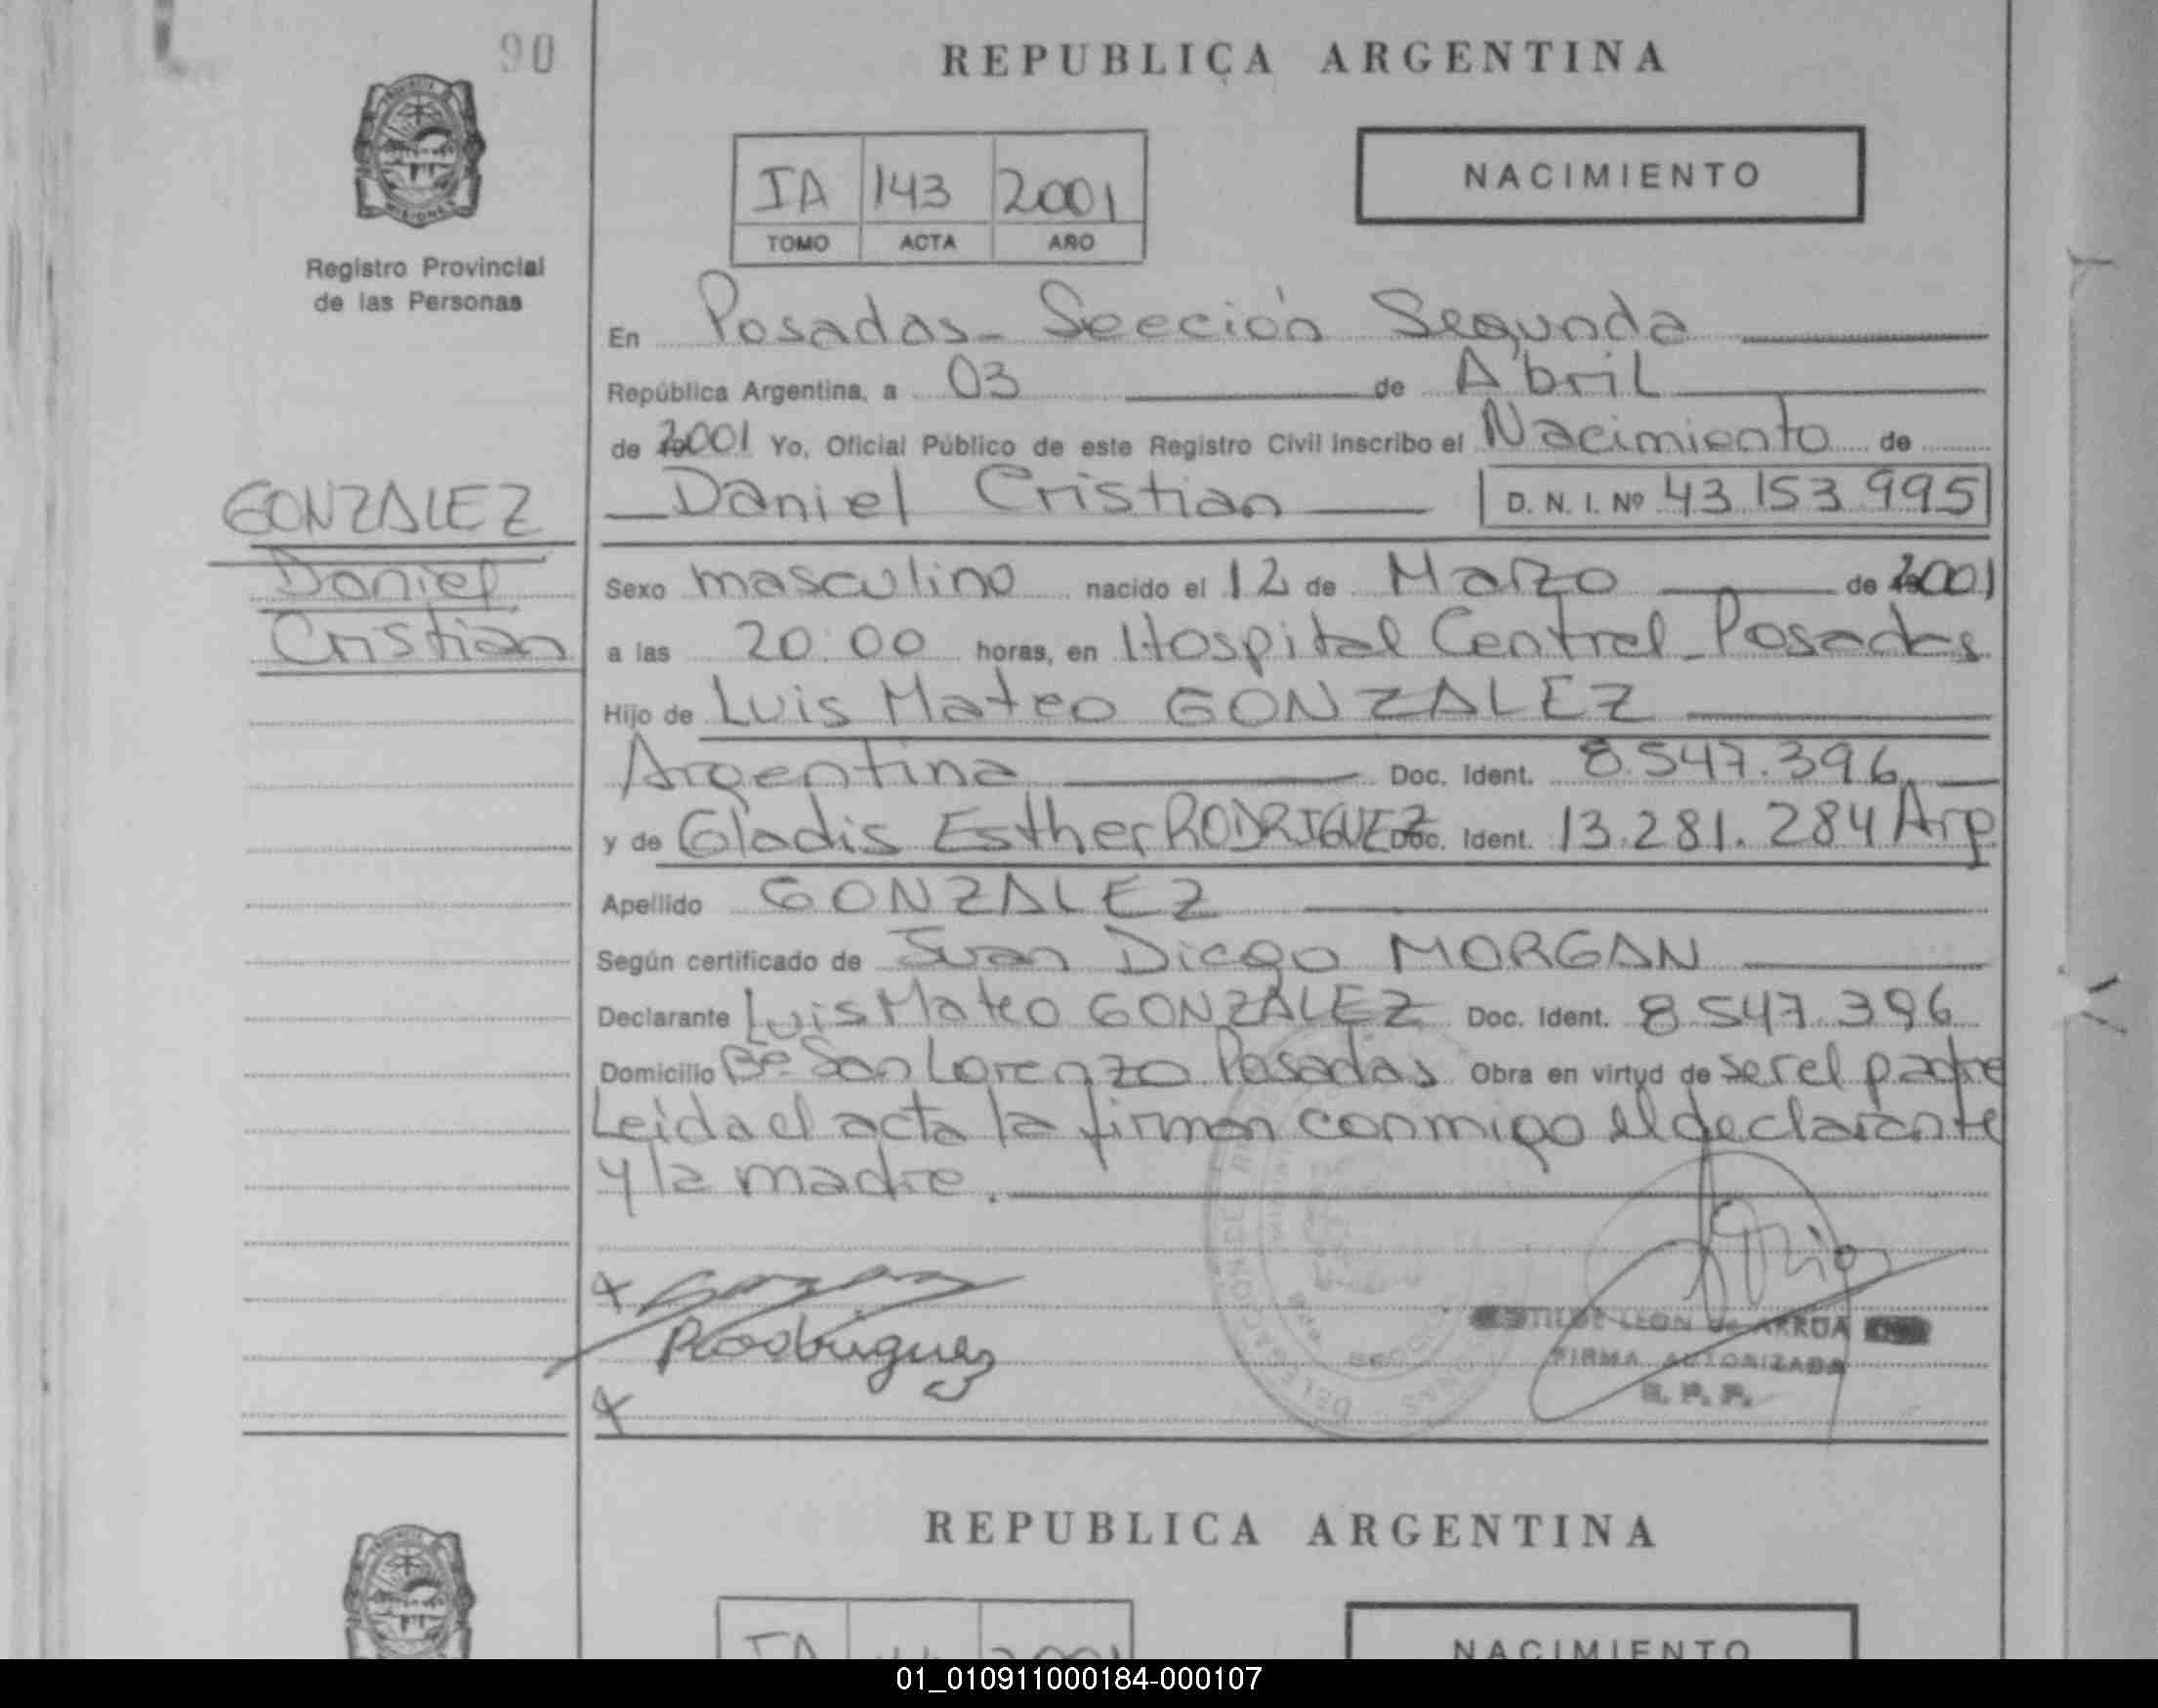 90
REPUBLICA ARGENTINA
IA 143 2001
TOMO ACTA AÑO
NACIMIENTO
MISIONES
Registro Provincial
de las Personas
En Posadas - Sección Segunda
República Argentina, a 03 de Abril
de 2001 Yo, Oficial Público de este Registro Civil inscribo el Nacimiento de
Daniel Cristian D. N. I. Nº 43.153.995
GONZALEZ
Daniel
Cristian
Sexo masculino nacido el 12 de Marzo de 2001
a las 20:00 horas, en Hospital Central - Posadas
Hijo de Luis Mateo GONZALEZ
Argentina Doc. Ident. 8.547.396
y de Gladis Esther RODRIGUEZ Doc. Ident. 13.281.284 Arg.
Apellido GONZALEZ
Según certificado de Juan Diego MORGAN
Declarante Luis Mateo GONZALEZ Doc. Ident. 8.547.396
Domicilio Bº San Lorenzo Posadas Obra en virtud de ser el padre
Leida el acta la firman conmigo el declarante
y la madre.
Rodriguez
LEON de ARRUA
FIRMA AUTORIZADA
R. P. P.
REPUBLICA ARGENTINA
IA 2001
NACIMIENTO
01_010911000184-000107